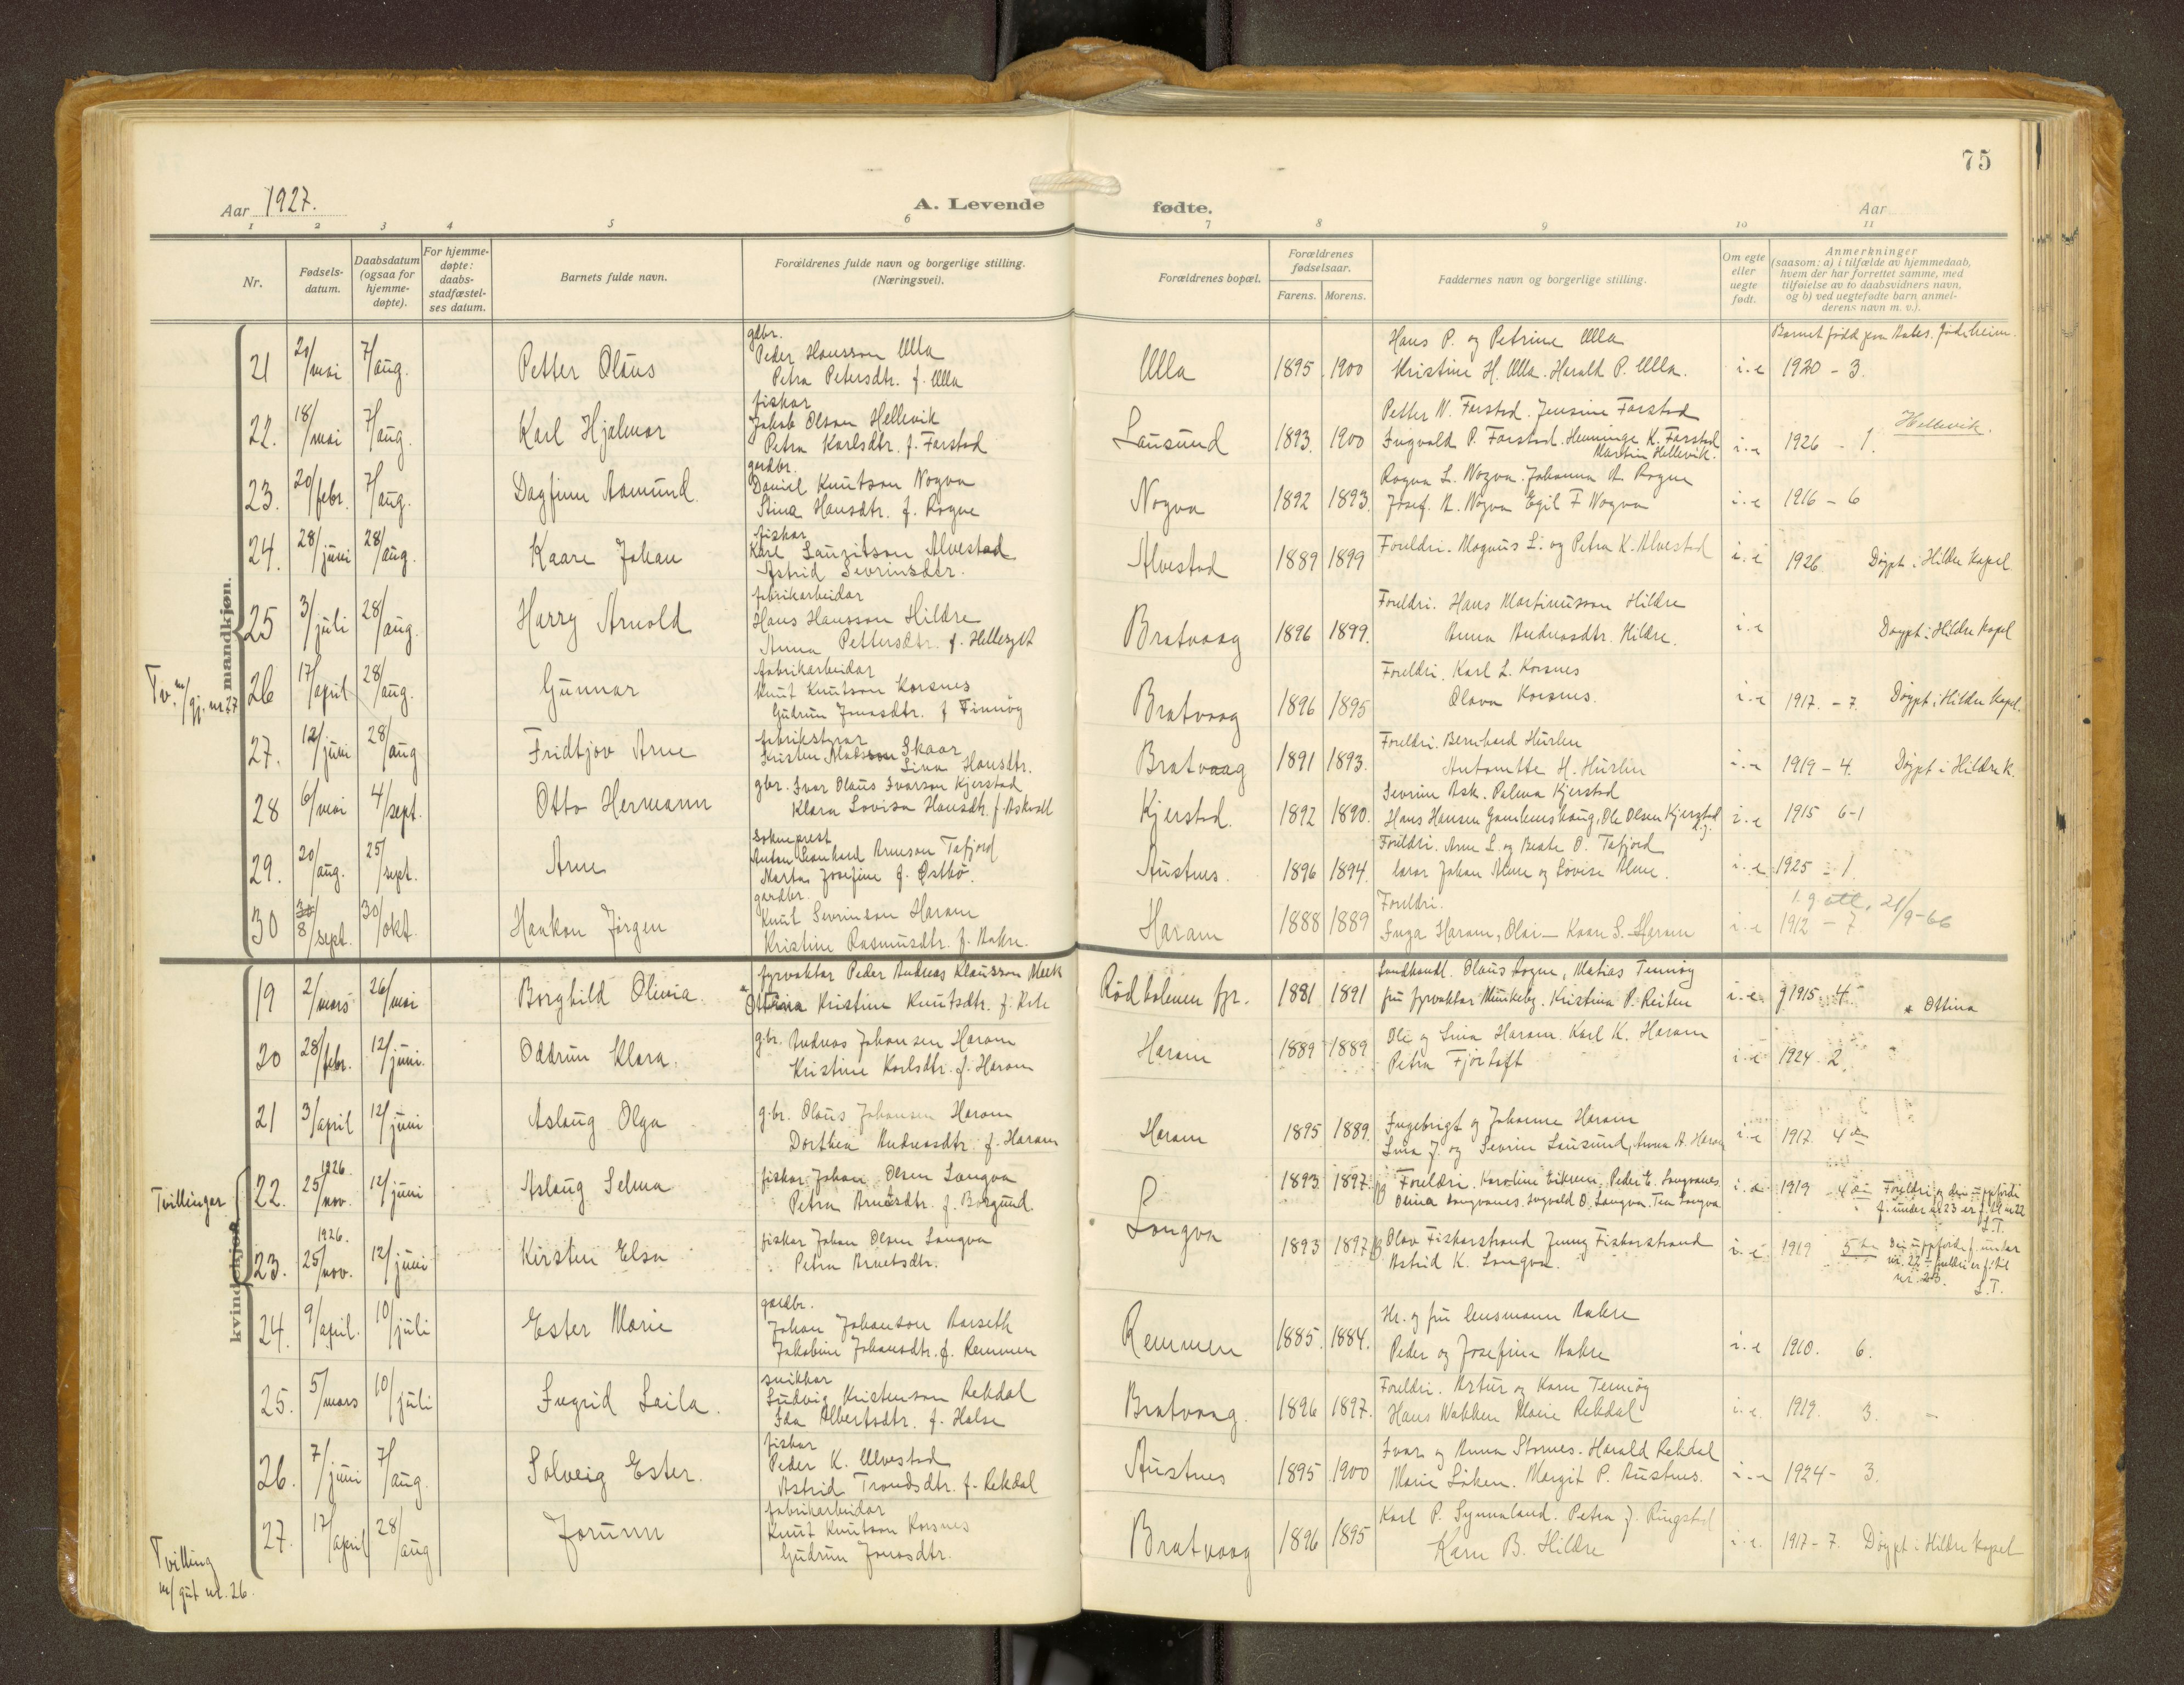 75
Aar 1927.
A. Levende fødte.
Aar
1 2 3 4 5 6 7 8 9 10 11
Nr.
Fødsels-
datum.
Daabsdatum
(ogsaa for
hjemme-
døpte).
For hjemme-
døpte:
daabs-
stadfæstel-
ses datum.
Barnets fulde navn.
Forældrenes fulde navn og borgerlige stilling.
(Næringsvei).
Forældrenes bopæl.
Forældrenes
fødselsaar.
Farens. Morens.
Faddernes navn og borgerlige stilling.
Om egte
eller
uegte
født.
Anmerkninger
(saasom: a) i tilfælde av hjemmedaab,
hvem der har forrettet samme, med
tilføielse av to daabsvidners navn,
og b) ved uegtefødte barn anmel-
derens navn m. v.).
mandkjøn.
gdbr.
Hans P. og Petrine Ulla
21 20/mai 7/aug. Petter Olaus Peder Hansson Ulla Ulla 1895 1900 Kristine H. Ulla. Harald P. Ulla. i.e 1920 - 3.
Petra Petersdtr. f. Ulla
fiskar
Petter N. Farstad. Jensine Farstad
22. 18/mai 7/aug. Karl Hjalmar Jakob Olson Hellevik Lausund 1893. 1900 Ingvald P. Farstad. Henninge K. Farstad i.e 1926 - 1. Hellevik.
Petra Karlsdtr. f. Farstad
Martin Hellevik.
gardbr.
Rogva L. Nogva. Johanna A. Rogne
23. 20/febr. 7/aug. Dagfinn Aamund Daniel Knutson Nogva Nogva 1892 1893. Josef. N. Nogva Egil F Nogva i.e 1916 - 6
Stina Hansdtr. f. Rogne
fiskar
24. 28/juni 28/aug. Kaare Johan Karl Lauritson Alvestad Alvestad 1889 1899 Foreldri. Magnus L. og Petra K. Alvestad i.e 1926 Døypt i Hildre Kapel
Astrid Sevrinsdtr.
fabrikarbeidar
Foreldri. Hans Martinusson Hildre
25 3/juli 28/aug. Harry Arnold Hans Hansson Hildre Bratvaag 1896 1899. Anna Andreasdtr. Hildre. i.e Døypt i Hildre Kapel
Anna Pettersdtr. f. Helleset
fabrikarbeidar
Foreldri. Karl L. Korsnes
Tv. m/gj. nr 27 26 17/april 28/aug. Gunnar Knut Knutson Korsnes Bratvaag 1896 1895 Olava Korsnes. i.e 1917. - 7. Døypt i Hildre Kapel.
Gudrun Jonasdtr. f Finnøy
fabrikstyrar
Foreldri. Bernhard Hurlen
27. 12/juni 28/aug Fridtjov Arne Kristen Madsson Skaar Bratvaag 1891 1893. Antonette H. Hurlen i.e 1919 - 4. Døypt i Hildre K.
Lina Hansdtr.
gbr. Ivar Olaus Ivarson Kjerstad
Sevrin Ask. Palma Kjerstad
28 6/mai 4/sept. Otto Hermann Klara Lovisa Hansdtr. f. Askvoll Kjerstad. 1892 1890. Hans Hansen Gamlemshaug, Ole Olsen Kjerstad i.e 1915 6-1
Sokneprest
Foreldri. Arne L. og Beate O. Tafjord
29. 20/aug. 25/sept. Arne Anton Leonhard Arneson Tafjord Austnes. 1896 1894. lærar Johan Alme og Lovise Alme. i.e 1925 - 1.
Marta Josefine f. Østbø.
gardbr.
Foreldri. 1. g att. 21/9-66
30 30/8/sept. 30/okt. Haakon Jørgen Knut Sevrinson Haram Haram 1888 1889 Inga Haram, Olai - Kaare S. Haram i.e 1912 - 7.
Kristine Rasmusdtr. f. Aakre.
kvindekjøn.
fyrvaktar Peder Andreas Klausson Meek
Landhandl. Olaus Rogne, Matias Tennøy
19 2/mars 26/mai Borghild Olivia. Ottina Kristine Knutsdtr. f. Rete Rødholmen fyr. 1881 1891 fru fyrvaktar Munkeby. Kristina P. Reiten i.e. 1915 - 4. * Ottina
g.br. Andreas Johansen Haram
Ole og Lina Haram. Karl K. Haram
20 28/febr. 12/juni. Oddrun Klara. Kristine Karlsdtr. f. Haram Haram 1889 1889 Petra Fjørtoft i.e 1924 - 2.
g.br. Olaus Johansen Haram
Ingebrigt og Johanne Haram
21 3/april 12/juni Aslaug Olga Dorthea Andreasdtr. f. Haram Haram 1895 1889. Lina J. og Sevrin Lausund, Anna A. Haram i.e 1917. 4
Tvillingar
1926.
fiskar Johan Olsen Longva
22. 25/nov. 12/juni Aslaug Selma Petra Arnesdtr. f. Borgund Longva 1893 1897. Foreldri. Karoline Eiknem, Peder E. Longvanes. i.e 1919 - 4 Foreldri og dei uppførde
f. under nr 23 er f. til nr 22
L.T.
1926.
fiskar Johan Olsen Longva
23. 25/nov. 12/juni Kirsten Elsa Petra Arnesdtr. 1893 1897 Olav Fiskarstrand Jenny Fiskarstrand i.e 1919 5 Dei uppførde f. under
Astrid K. Longva.
nr. 22 - foreldri er f. til
nr. 23.
L.T.
gardbr.
Hr. og fru lensmann Aakre
24. 9/april. 10/juli Ester Marie Johan Johanson Aarseth Remmen 1885. 1884. Peder og Josefine Aakre i.e 1910. 6.
Jakobine Johansdtr. f. Remmen
snikkar
Foreldri. Artur og Karen Tennøy
25. 5/mars 10/juli Ingrid Laila. Ludvig Kristenson Rekdal Bratvaag. 1896 1897. Hans Nakken Marie Rekdal i.e. 1919. 3. -
Ida Albertsdtr. f. Halse
fiskar
Ivar og Anna Stornes. Harald Rekdal
26. 7/juni 7/aug. Solveig Ester. Peder K. Alvestad Austnes 1895 1900 Marie Løken. Margit P. Austnes. i.e 1924 - 3.
Astrid Trondsdtr. f. Rekdal
fabrikarbeidar
Karl P. Synnaland. Petra J. Ringstad
27. 17/april 28/aug Jorunn Knut Knutson Korsnes Bratvaag 1896 1895 Karen B. Hildre i.e. 1917 - 7. Døypt i Hildre Kapel
Gudrun Jonasdtr.
Tvilling
m/gut nr. 26.